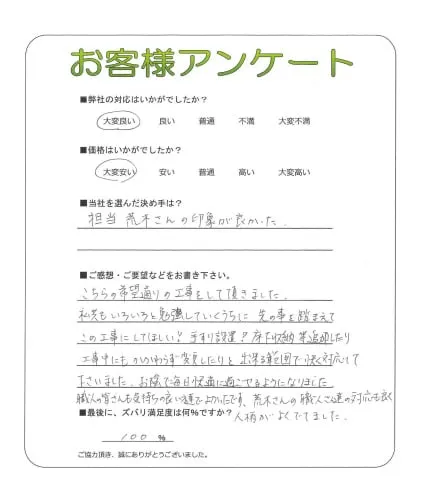 お客様アンケート
■弊社の対応はいかがでしたか？
大変良い 良い 普通 不満 大変不満
■価格はいかがでしたか？
大変安い 安い 普通 高い 大変高い
■当社を選んだ決め手は？
担当 荒木さんの印象が良かった。
■ご感想・ご要望などをお書き下さい。
こちらの希望通りの工事をして頂きました。
私共もいろいろと勉強していくうちに 先の事を踏まえて
この工事にしてほしい！手すり設置？床下収納 等追加したり
工事中にもかかわらず変更したりと 出来る範囲で快く対応して
下さいました。お陰で毎日快適に過ごせるようになりました
職人の皆さんも気持ちの良い方でよかったです。荒木さんの職人さん達の対応も良く
人柄がよくでてました。
■最後に、ズバリ満足度は何%ですか？
100 %
ご協力頂き、誠にありがとうございました。